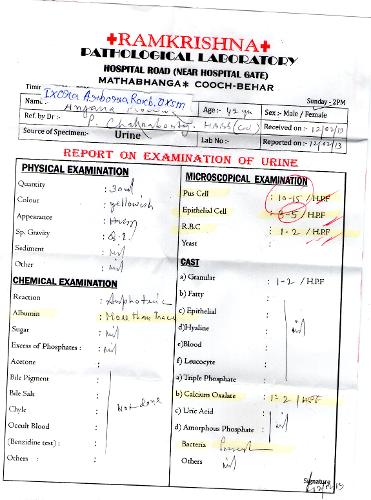 +RAMKRISHNA+
PATHOLOGICAL LABORATORY
HOSPITAL ROAD (NEAR HOSPITAL GATE)
MATHABHANGA * COOCH-BEHAR
Timin Sunday - 2PM
Name:- Anjana Age:- 42 yrs Sex:- Male / Female
Ref. by Dr:- P. Chakraborty, Received on:- 12/02/13
Source of Specimen:- Urine Lab No:- Reported on:- 12/02/13
REPORT ON EXAMINATION OF URINE
PHYSICAL EXAMINATION
Quantity : 30ml
Colour : yellowish
Appearance : Hazy
Sp. Gravity : Q.S.
Sediment : nil
Other : nil
CHEMICAL EXAMINATION
Reaction : Amphoteric
Albumin : More than Trace
Sugar : nil
Excess of Phosphates : nil
Acetone :
Bile Pigment :
Bile Salt :
Chyle : Not done
Occult Blood :
(Benzidine test) :
Others :
MICROSCOPICAL EXAMINATION
Pus Cell : 10-15 / H.P.F
Epithelial Cell : / H.P.F
R.B.C : 1-2 / H.P.F
Yeast :
CAST
a) Granular : 1-2 / H.P.F
b) Fatty :
c) Epithelial :
d) Hyaline : nil
e) Blood :
f) Leucocyte :
a) Triple Phosphate :
b) Calcium Oxalate : 1-2 / H.P.F
c) Uric Acid :
d) Amorphous Phosphate : nil
Bacteria : Present
Others : nil
Signature